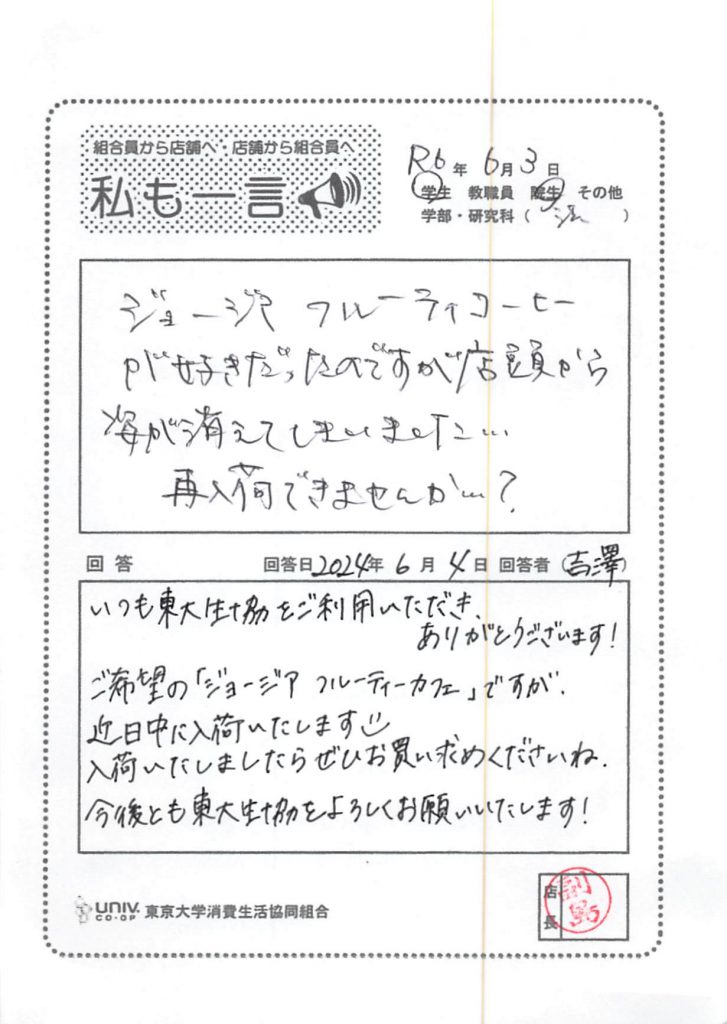 組合員から店舗へ・店舗から組合員へ
私も一言
R6年 6月3日
学生 教職員 院生 その他
学部・研究科（法）
ジョージア フルーティコーヒー
が好きだったのですが店頭から
姿が消えてしまいました…
再入荷できませんか…？
回答 回答日2024年 6月 4日 回答者（吉澤）
いつも東大生協をご利用いただき、
ありがとうございます！
ご希望の「ジョージア フルーティーカフェ」ですが、
近日中に入荷いたします
入荷いたしましたらぜひお買い求めくださいね。
今後とも東大生協をよろしくお願いいたします！
UNIV. CO-OP 東京大学消費生活協同組合
店長